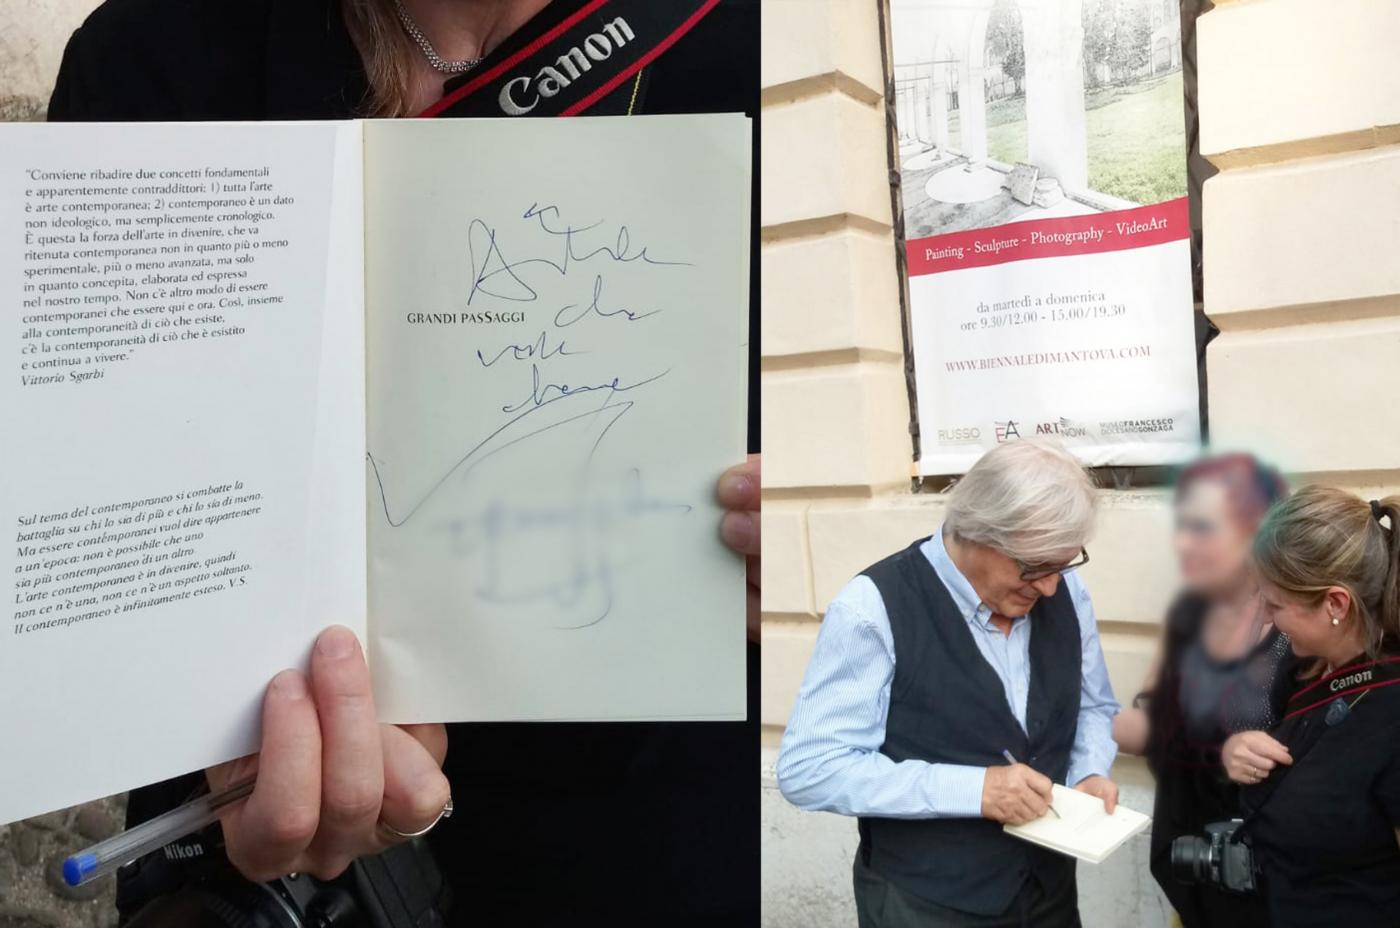 Canon
"Conviene ribadire due concetti fondamentali
e apparentemente contraddittori: 1) tutta l'arte
è arte contemporanea; 2) contemporaneo è un dato
non ideologico, ma semplicemente cronologico.
È questa la forza dell'arte in divenire, che va
ritenuta contemporanea non in quanto più o meno
sperimentale, più o meno avanzata, ma solo
in quanto concepita, elaborata ed espressa
nel nostro tempo. Non c'è altro modo di essere
contemporanei che essere qui e ora. Così, insieme
alla contemporaneità di ciò che esiste,
c'è la contemporaneità di ciò che è esistito
e continua a vivere."
Vittorio Sgarbi
Sul tema del contemporaneo si combatte la
battaglia su chi lo sia di più e chi lo sia di meno.
Ma essere contemporanei vuol dire appartenere
a un'epoca: non è possibile che uno
sia più contemporaneo di un altro.
L'arte contemporanea è in divenire, quindi
non ce n'è una, non ce n'è un aspetto soltanto.
Il contemporaneo è infinitamente esteso. V.S.
GRANDI PASSAGGI
Nikon
Painting - Sculpture - Photography - VideoArt
da martedì a domenica
ore 9.30/12.00 - 15.00/19.30
WWW.BIENNALEDIMANTOVA.COM
RUSSO
EA
ART NOW
MUSEO FRANCESCO
DIOCESANO GONZAGA
Canon